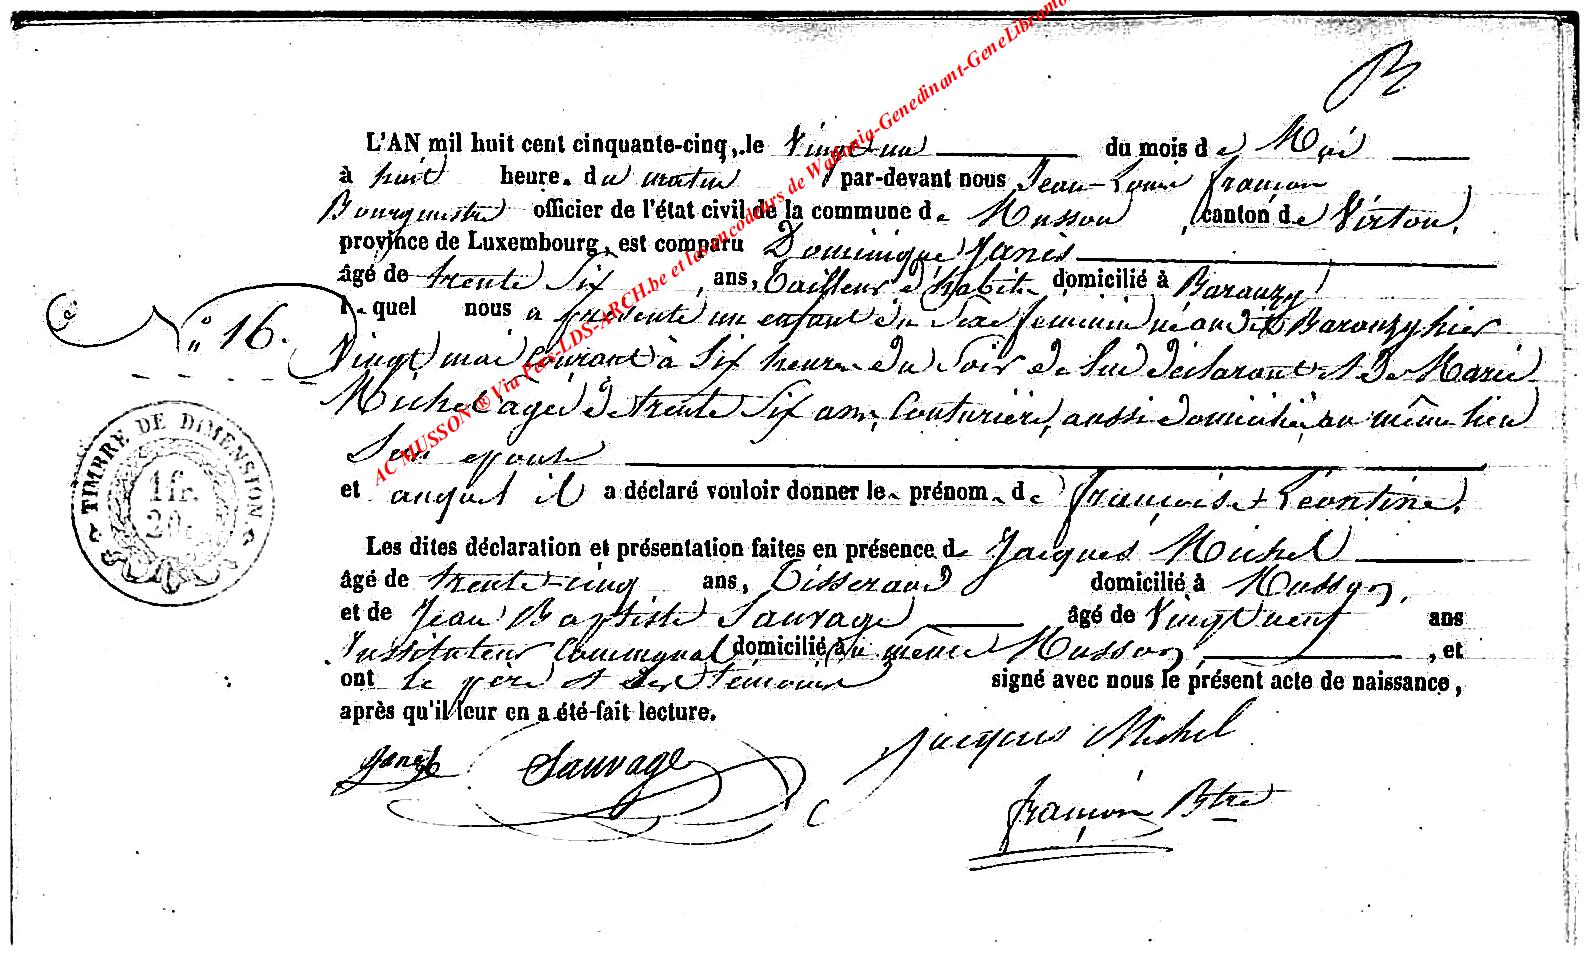 L'AN mil huit cent cinquante-cinq, le Vingt un du mois de Mai
à huit heures du matin par-devant nous Jean-Louis François
Bourgmestre officier de l'état civil de la commune de Musson, canton de Virton,
province de Luxembourg, est comparu Dominique Janis
âgé de trente six ans, Tailleur d'habits domicilié à Baranzy
lequel nous a présenté un enfant du Sexe feminin né au dit Baranzy hier
N° 16.
Vingt mai Courant à Six heures du Soir de lui déclarant et de Marie
Michel agée de trente Six ans, Couturière, aussi domiciliée au même lieu
Son épouse
et auquel il a déclaré vouloir donner les prénoms de François Léontine.
Les dites déclaration et présentation faites en présence de Jacques Michel
âgé de trente-cinq ans, Tisserand domicilié à Musson,
et de Jean Baptiste Sauvage âgé de Vingt neuf ans
Instituteur Communal domicilié au même Musson, et
ont le père et les témoins signé avec nous le présent acte de naissance,
après qu'il leur en a été fait lecture.
Janis Sauvage Jacques Michel
François Btre
TIMBRE DE DIMENSION.
1 fr.
20 c.
AC MUSSON ® Via Fex-LDS-ARCH.be et les encodeurs de Wallonia-Genedinant-GeneLibramo